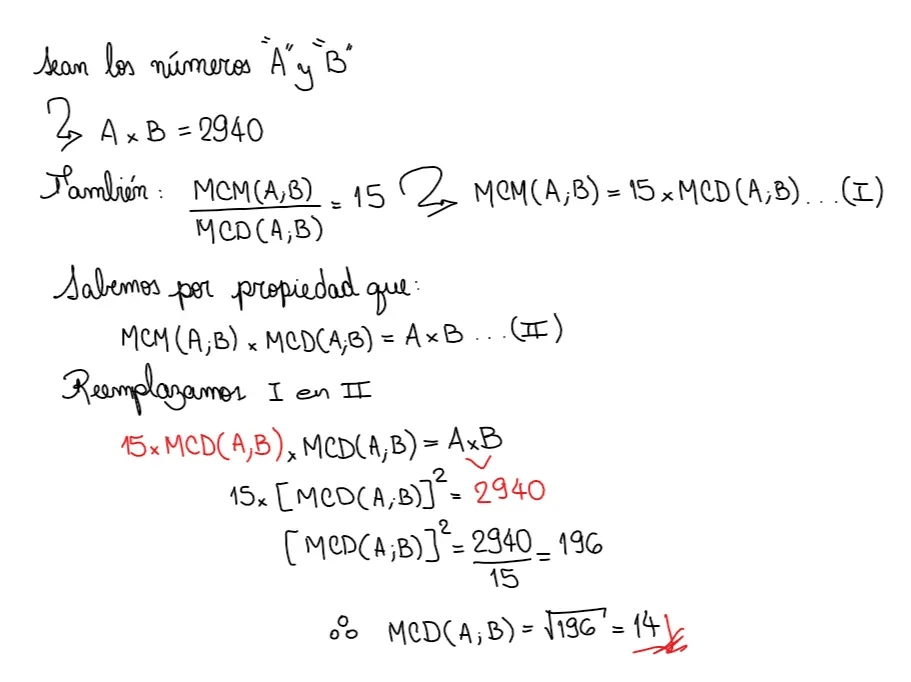 Sean los números "A" y "B"
A × B = 2940
También: MCM(A;B) / MCD(A;B) = 15 MCM(A;B) = 15 × MCD(A;B) ... (I)
Sabemos por propiedad que:
MCM(A;B) × MCD(A;B) = A × B ... (II)
Reemplazamos I en II
15 × MCD(A;B) × MCD(A;B) = A × B
15 × [MCD(A;B)]² = 2940
[MCD(A;B)]² = 2940 / 15 = 196
∴ MCD(A;B) = √196 = 14